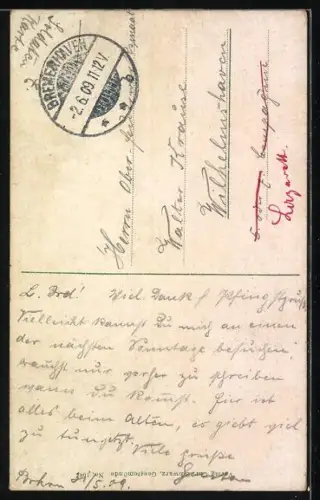 Soldaten
Karte
BREMERHAVEN
-2.6.09 11-12V.
* b
Herrn Ober
Walter Krause
Wilhelmshaven
Compagnie
Lazarett.
L. Brd! Viel. Dank f Pfingstgruß
Vielleicht kannst Du mich an einem
der nächsten Sonntage besuchen
brauchst nur vorher zu schreiben
wann Du kommst. Hier ist
alles beim Alten, es giebt viel
zu tun, jetzt. Viele Grüße
31/5.09.